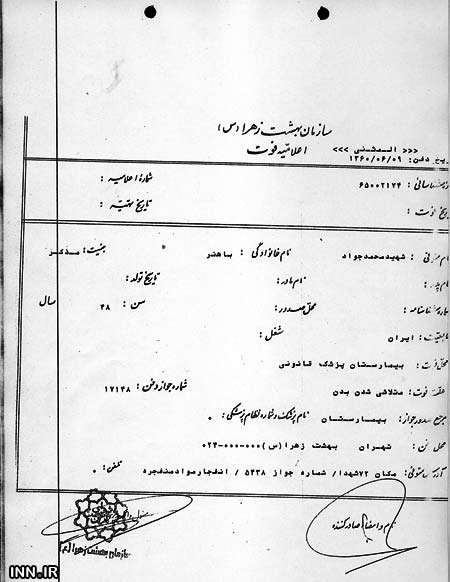 سازمان بهشت زهرا (س)
<<< الـمـثـنـی >>>
اعلامیه فوت
ریخ دفن: ۱۳۶۰/۰۶/۰۹
شناسائی: ۶۵۰۰۲۱۲۴ شماره اعلامیه :
ریخ فوت : تاریخ تهیه :
نام متوفی : شهیدمحمدجواد نام خانوادگی : باهنر جنسیت: مذکر
نام پدر: نام مادر: تاریخ تولد:
محل صدور: سن : ۴۸ سال
تابعیت: ایران شغل:
محل فوت: بیمارستان پزشک قانونی
علت فوت: متلاشی شدن بدن شماره جواز دفن: ۱۷۱۴۸
مرجع صدور جواز: بیمارستان نام پزشک و شماره نظام پزشکی:
محل دفن: تهران بهشت زهرا(س) ۰۰۰-۰۰۰-۰۲۴
آدرس متوفی: مکان ۷۲شهدا/ شماره جواز ۵۴۳۸ / انفجارموادمنفجره تلفن:
نام و امضاء صادرکننده
سازمان بهشت زهرا (س)
INN.IR